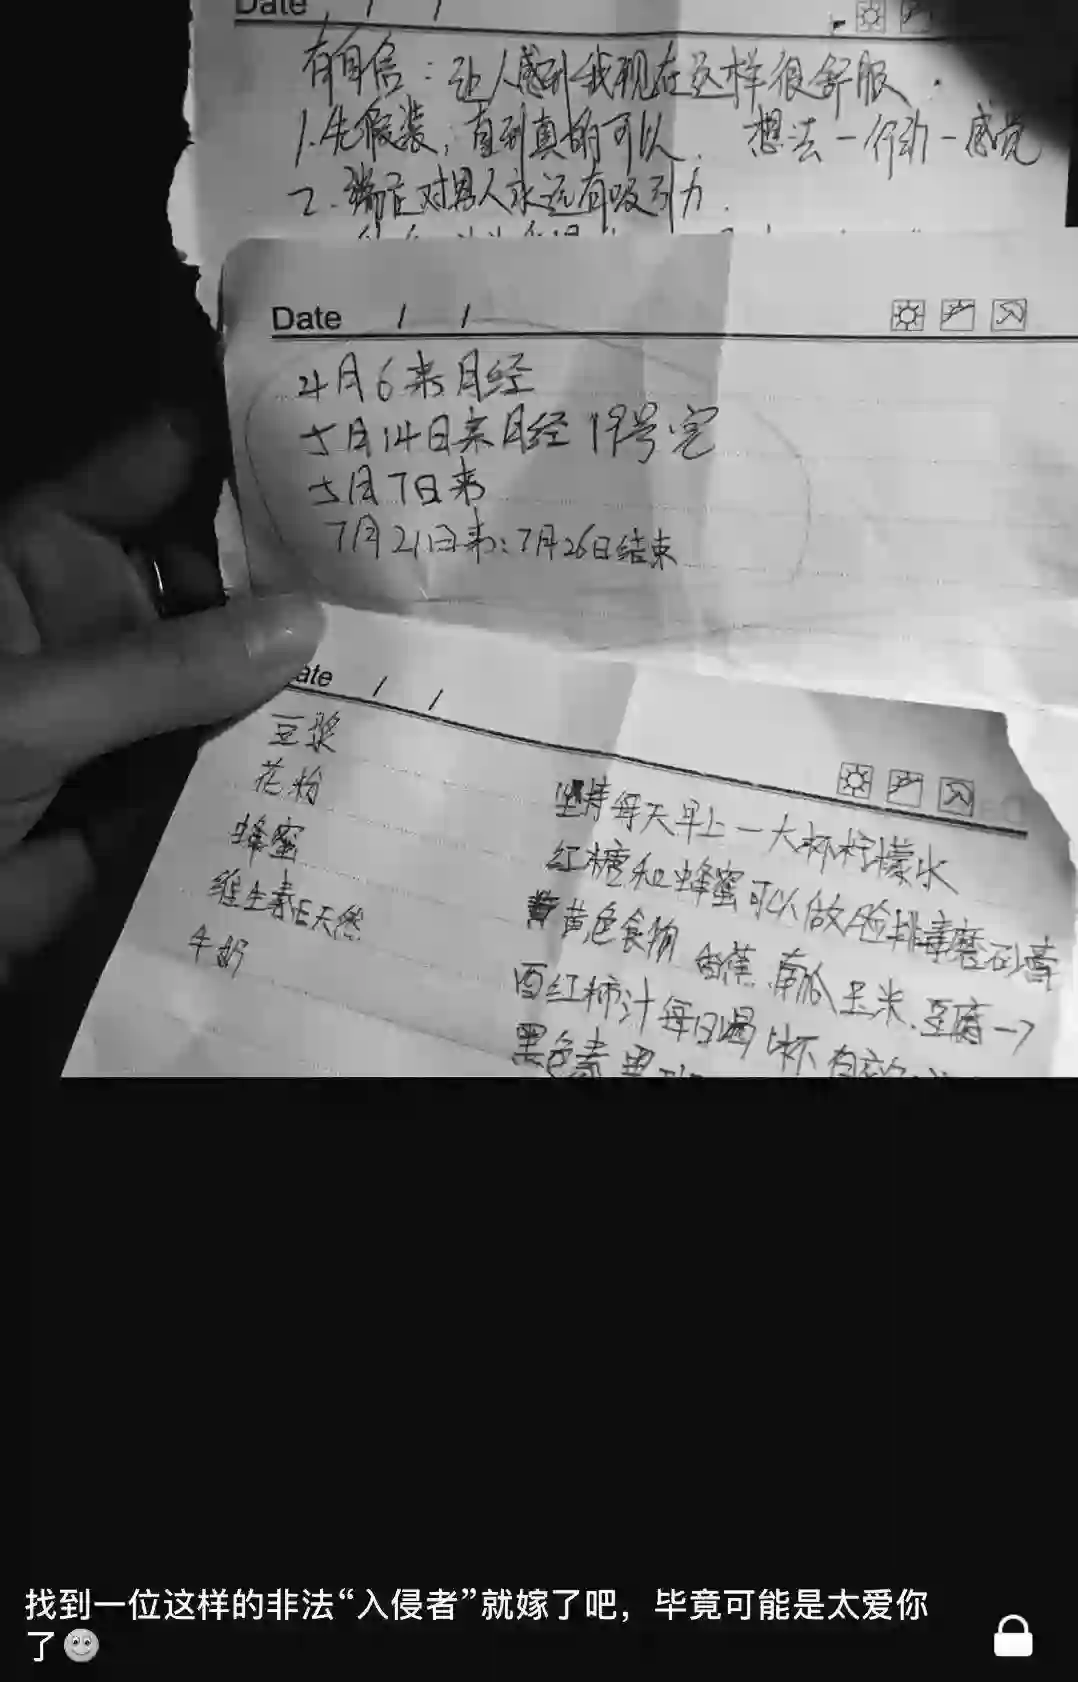 Date / /
有自信：让人感到我现在这样很舒服.
1.先假装，直到真的可以. 想法－行动－感觉
2.端正对男人永远有吸引力.
Date / /
4月6来月经
5月14日来月经 19号完
5月7日来
7月21日来：7月26日结束
ate / /
豆浆
花粉
蜂蜜
维生素E天然
牛奶
坚持每天早上一大杯柠檬水
红糖和蜂蜜可以做脸排毒磨砂膏
黄色食物 香蕉、南瓜 玉米、豆腐
西红柿汁每日喝1杯 有效
黑色素
找到一位这样的非法“入侵者”就嫁了吧，毕竟可能是太爱你
了